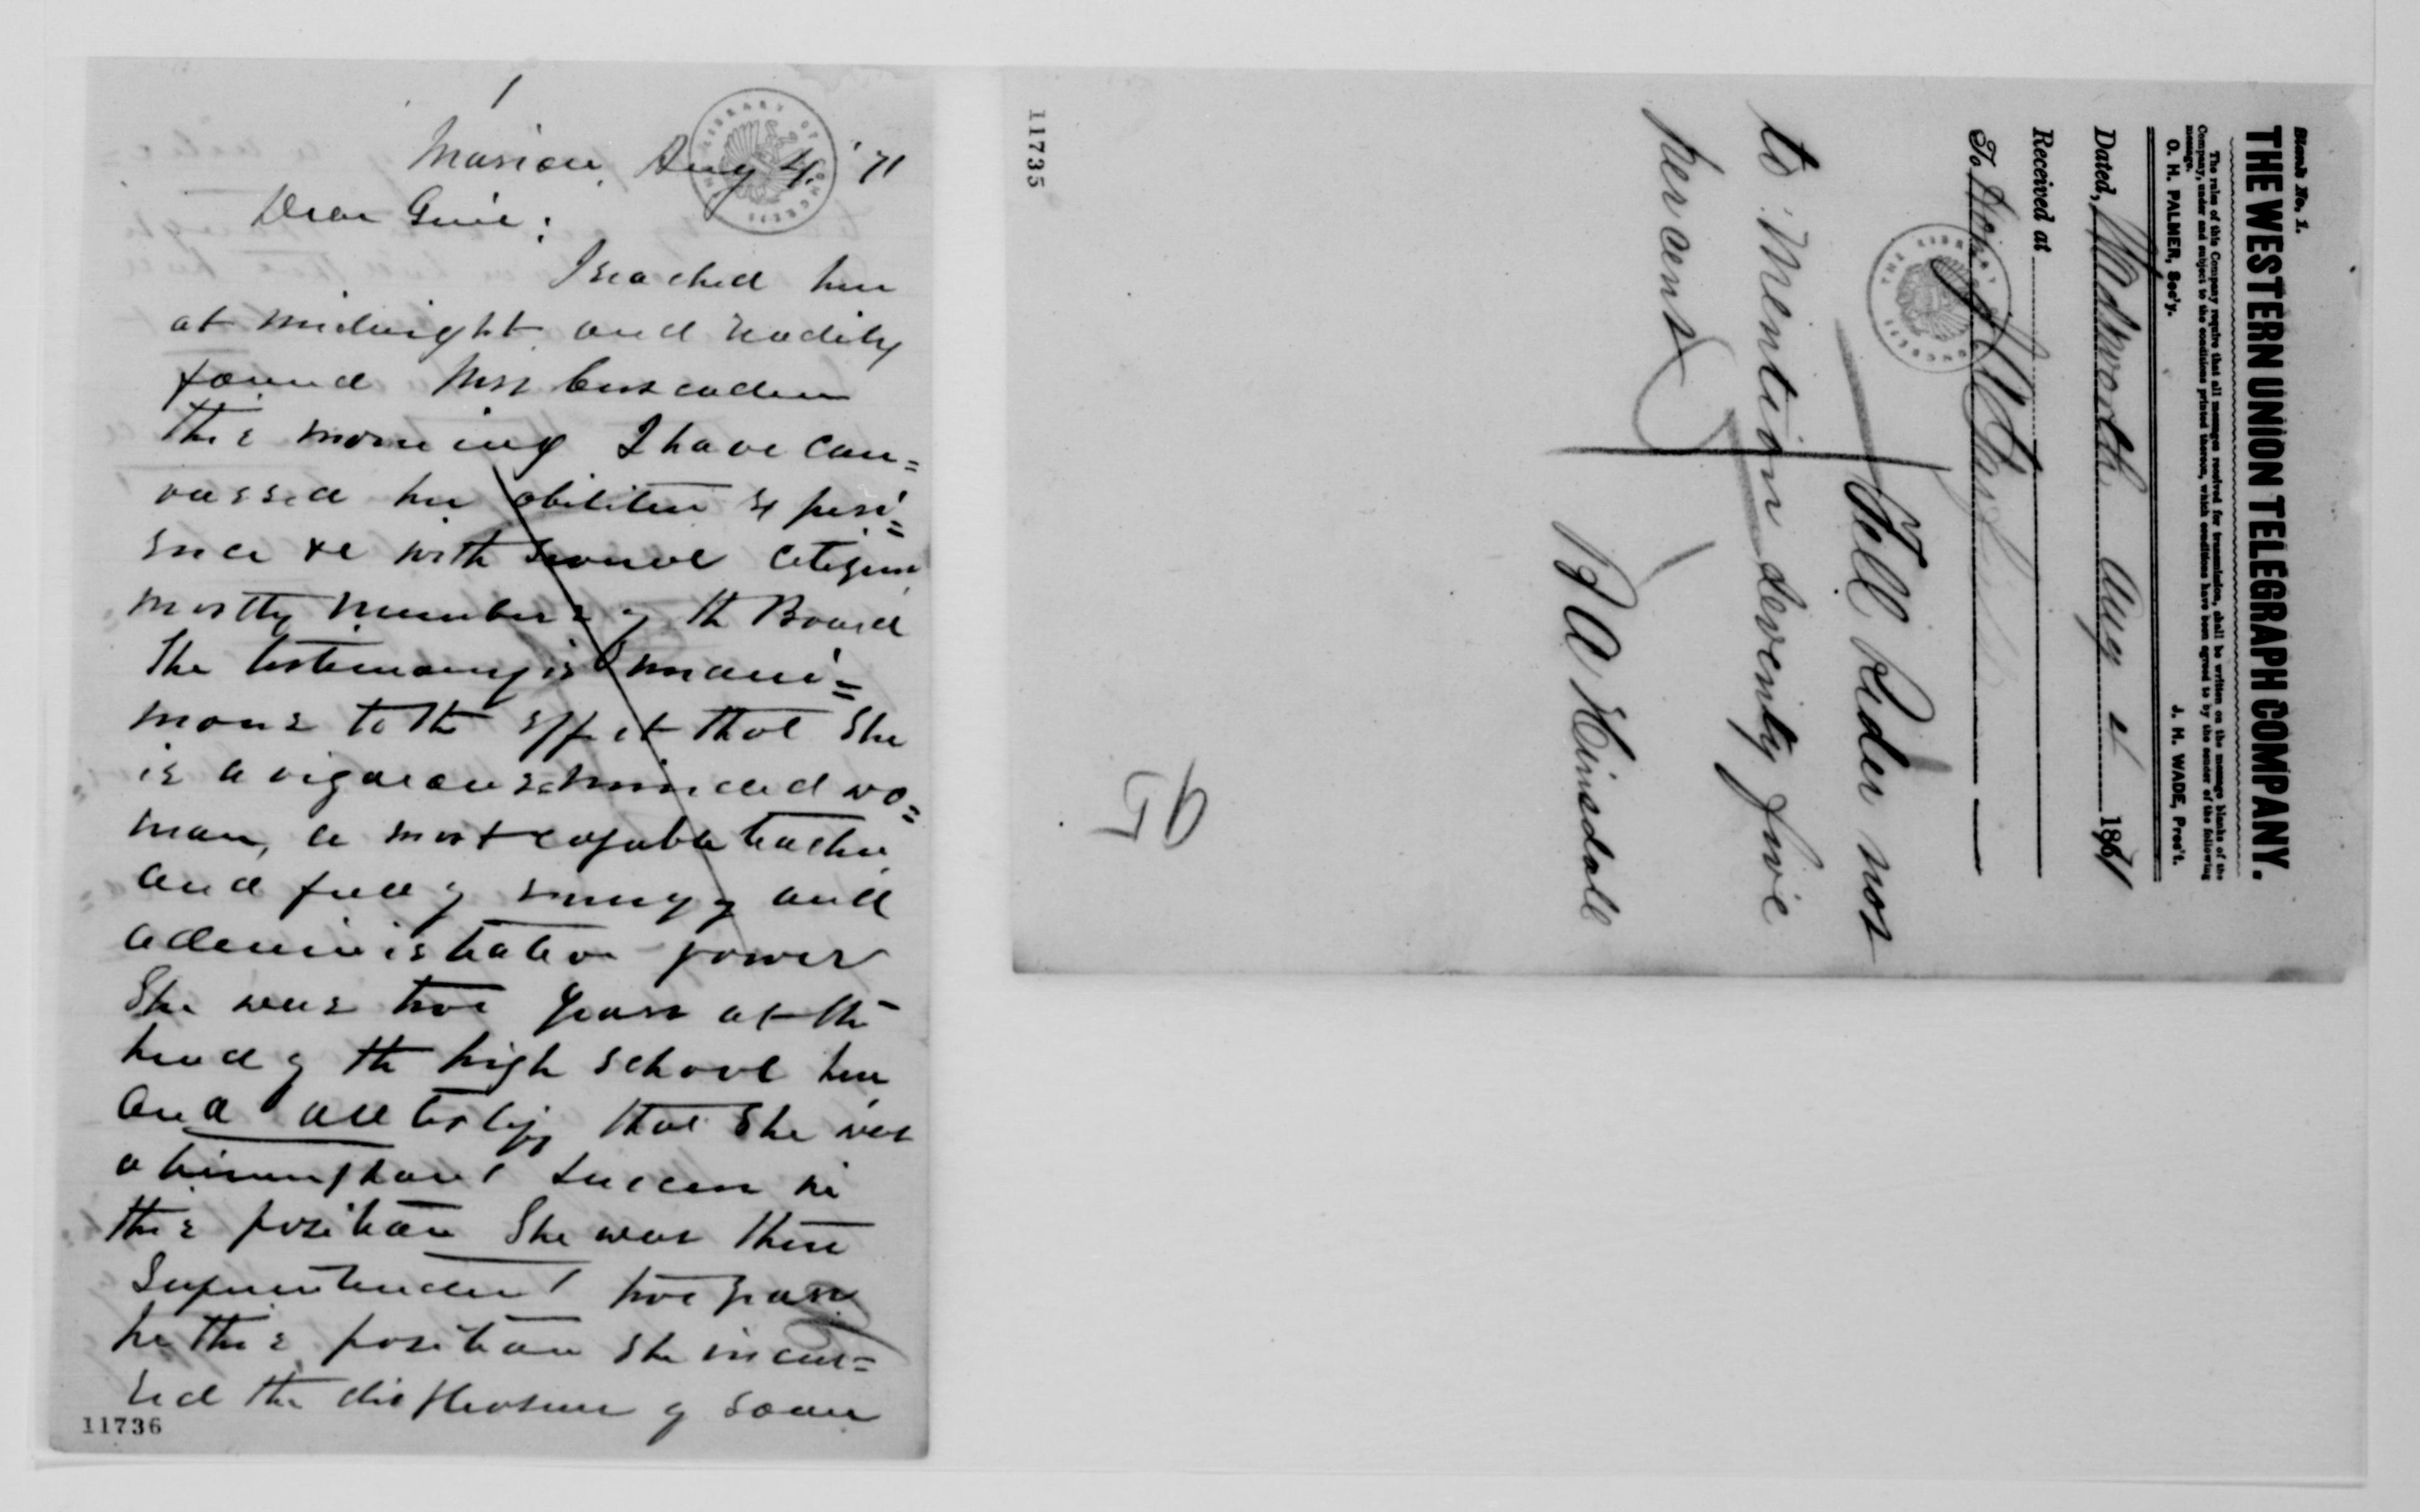 1
Marion, Aug 4, '71
Dear Genl:
I reached here
at midnight and readily
found Miss
This morning I have can=
vassed her abilities experi=
ence &c with several citizens
mostly members of the Board
The testimony is unani=
mous to the effect that she
is a vigorous minded wo=
man, a most capable teacher
and full of energy and
administrative power
She was two years at the
head of the high school here
and all testify that she was
a triumphant success in
this position She was then
Superintendent two years
In this position she incur=
red the displeasure of some
11736
11735
Blank No. 1.
THE WESTERN UNION TELEGRAPH COMPANY.
The rules of this Company require that all messages received for transmission, shall be written on the message blanks of the
Company, under and subject to the conditions printed thereon, which conditions have been agreed to by the sender of the following
message.
O. H. PALMER, Sec'y. J. H. WADE, Pres't.
Dated, Wadsworth Aug 2 1871
Received at
To Hon J A Garfield
Tell Rider not
to mention seventy five
per cent
B A Hinsdale
95
THE LIBRARY OF CONGRESS
THE LIBRARY OF CONGRESS